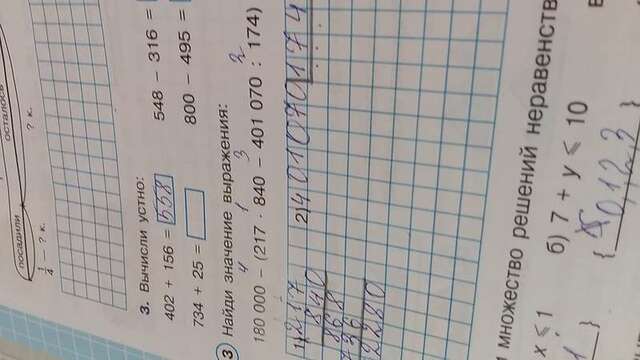 посадили
осталось
1/4 – ? к.
? к.
3. Вычисли устно:
402 + 156 = 558
548 – 316 =
734 + 25 =
800 – 495 =
3 Найди значение выражения:
4 1 3 2
180 000 – (217 · 840 – 401 070 : 174)
1) 217 2) 401070 174
840
868
1736
множество решений неравенств
x ⩽ 1
б) 7 + y ⩽ 10
{ 0 1 2 3 }